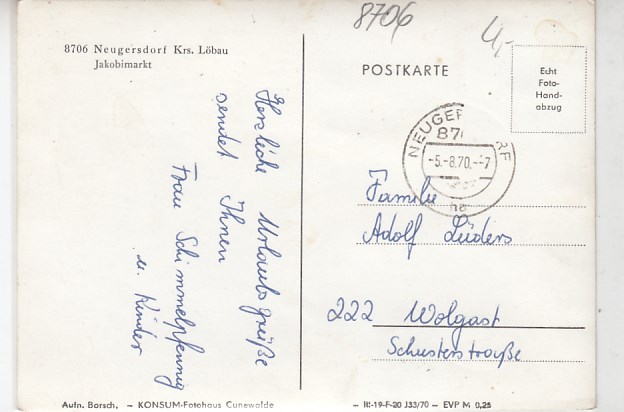 8706
4,-
8706 Neugersdorf Krs. Löbau
Jakobimarkt
POSTKARTE
Echt
Foto-
Hand-
abzug
NEUGER RF
87
-5.-8.70.--7
Herzliche Urlaubsgrüße
sendet Ihnen
Frau Schimmelpfennig
u. Kinder
Familie
Adolf Lüders
222 Wolgast
Schusterstraße
Aufn. Borsch, – KONSUM-Fotohaus Cunewalde
– III-19-F-20 J33/70 – EVP M 0,25